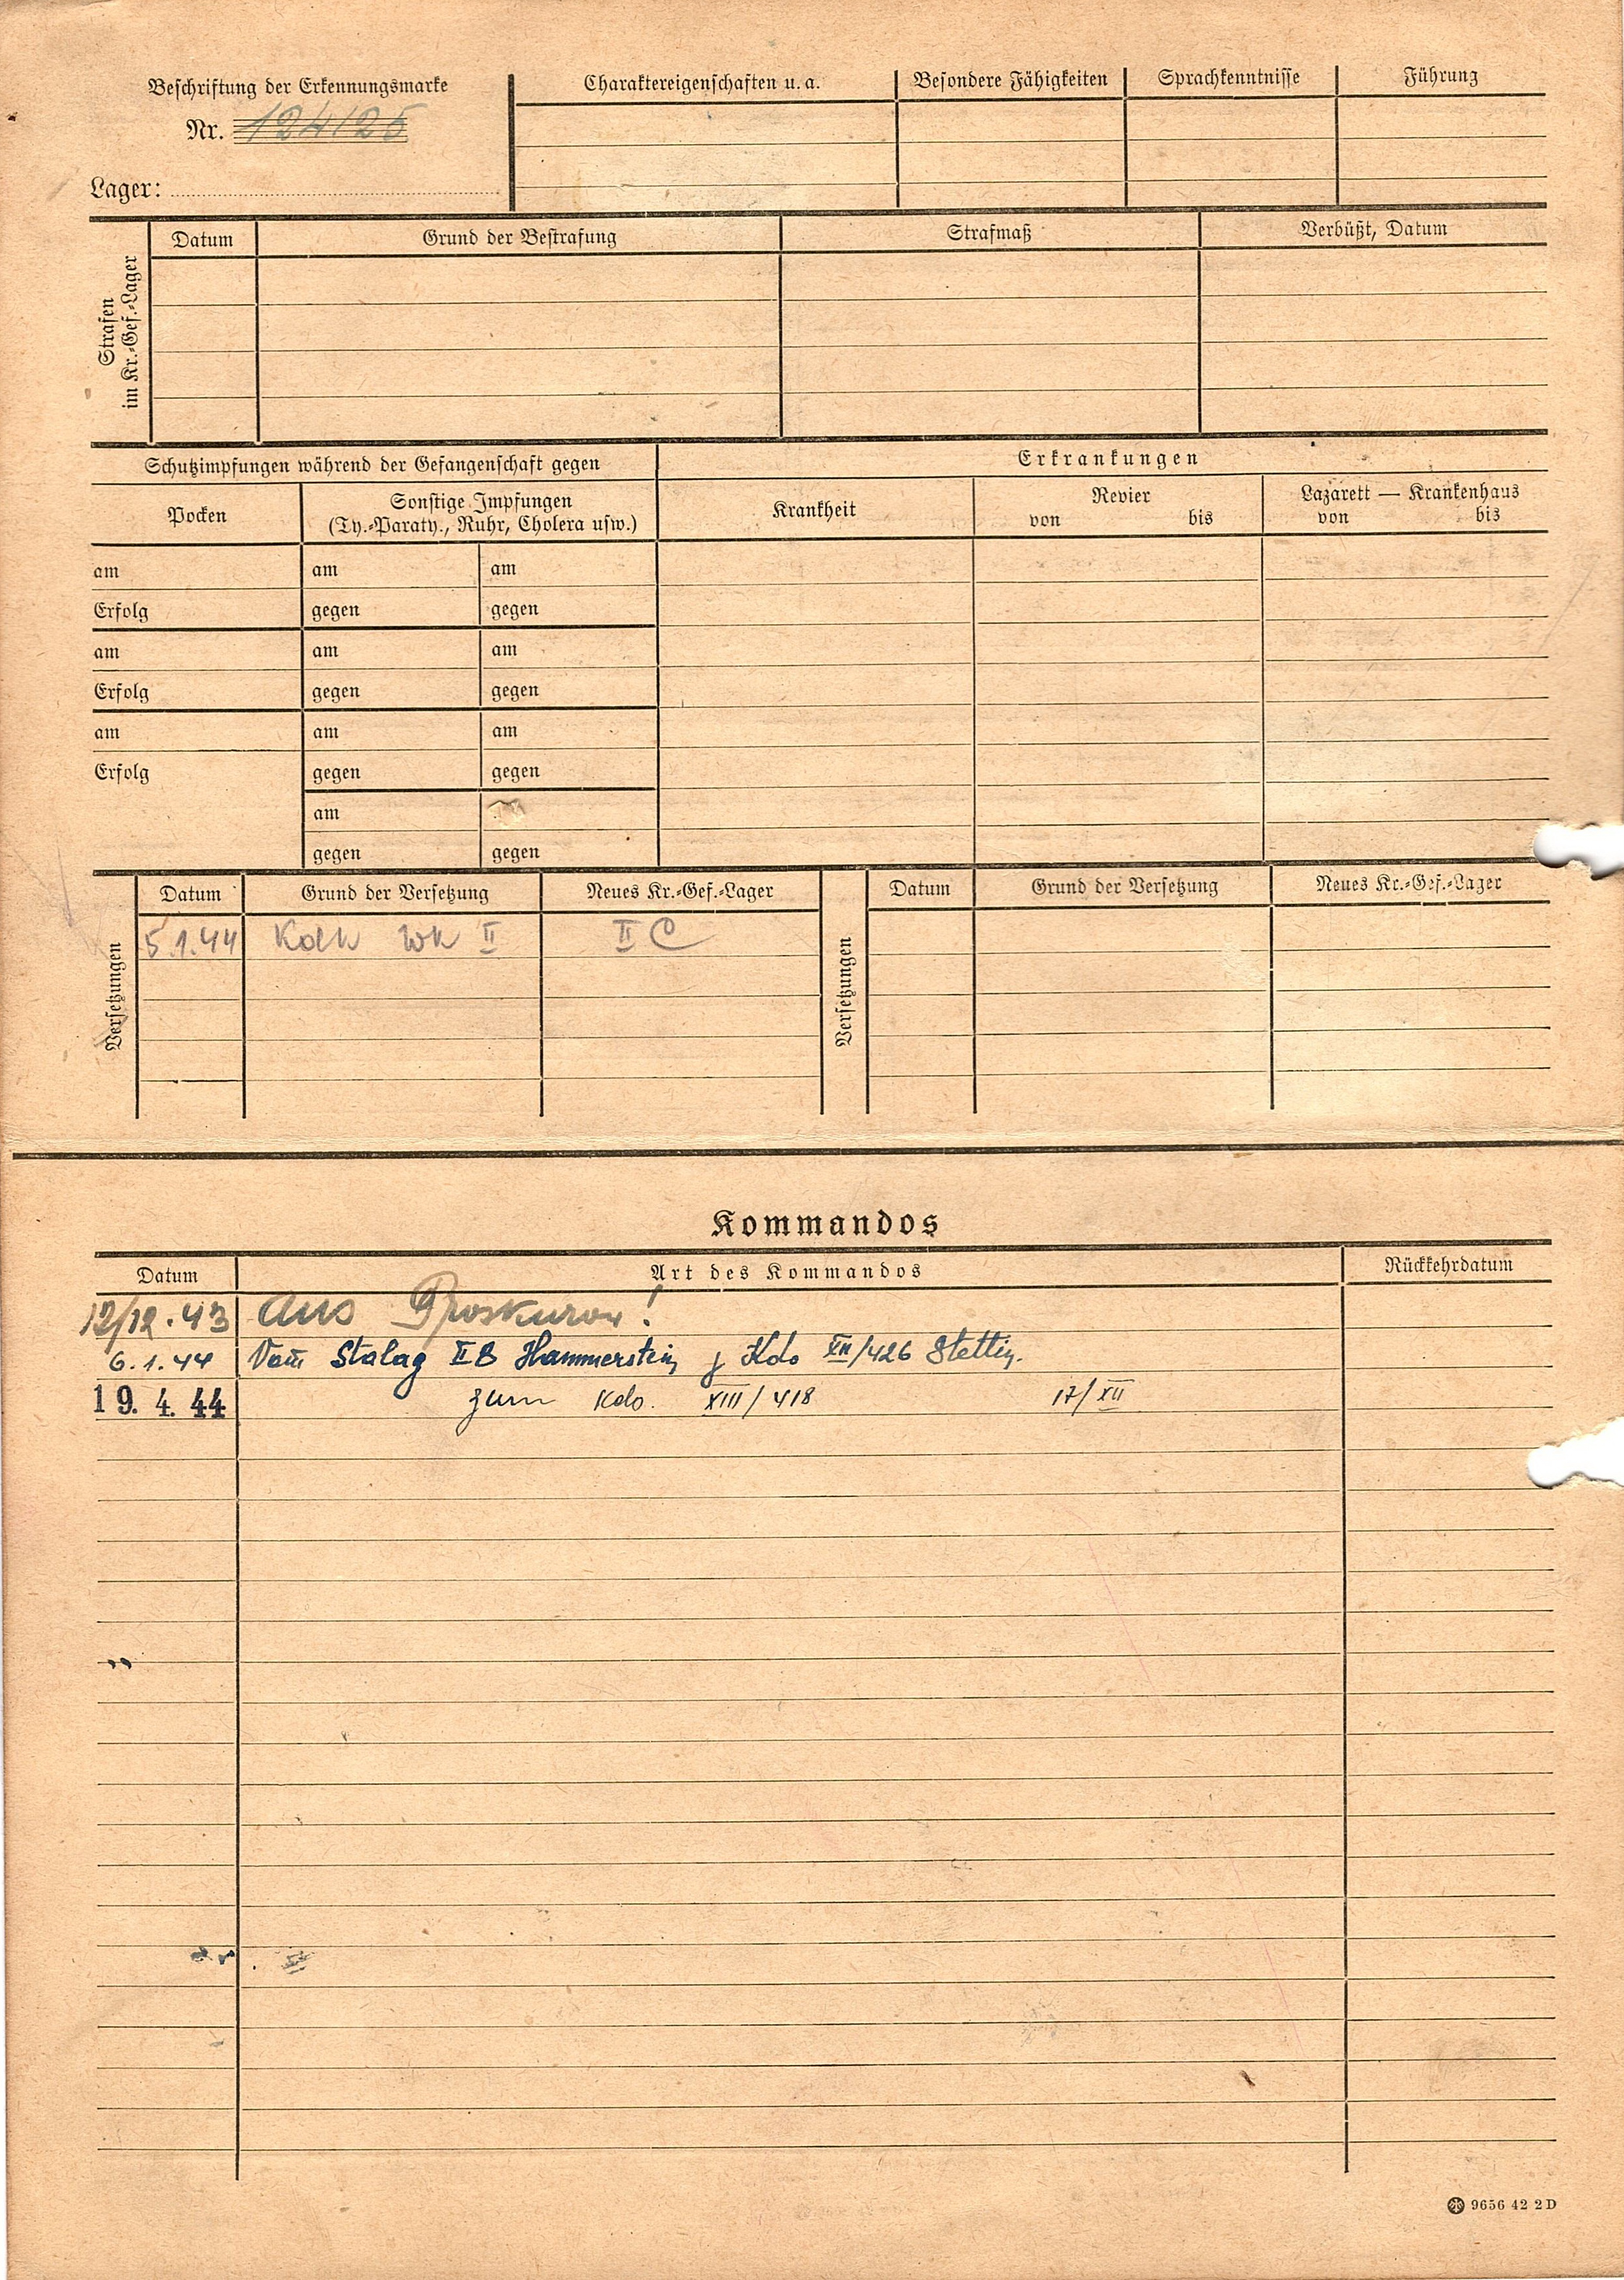 Beschriftung der Erkennungsmarke
Nr. 124125
Lager:
Charaktereigenschaften u. a.
Besondere Fähigkeiten
Sprachkenntnisse
Führung
Strafen
im Kr.-Gef.-Lager
Datum
Grund der Bestrafung
Strafmaß
Verbüßt, Datum
Schutzimpfungen während der Gefangenschaft gegen
Erkrankungen
Pocken
Sonstige Impfungen
(Ty.-Paraty., Ruhr, Cholera usw.)
Krankheit
Revier
von bis
Lazarett — Krankenhaus
von bis
am am am
Erfolg gegen gegen
am am am
Erfolg gegen gegen
am am am
Erfolg gegen gegen
am
gegen gegen
Versetzungen
Datum Grund der Versetzung Neues Kr.-Gef.-Lager
5.1.44 Wk II II C
Versetzungen
Datum Grund der Versetzung Neues Kr.-Gef.-Lager
Kommandos
Datum Art des Kommandos Rückkehrdatum
12/12.43 aus Proskurow!
6.1.44 Vom Stalag II B Hammerstein z Kdo XII/426 Stettin.
19. 4. 44 zum Kdo. XIII/418 17/XII
9656 42 2 D